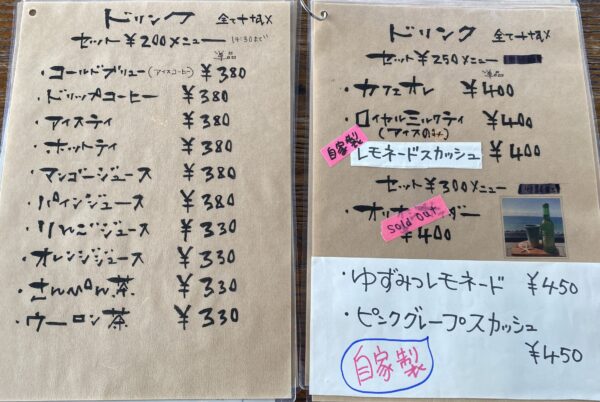 ドリンク 全て+税
セット ¥200メニュー 14:30まで
単品
・コールドブリュー(アイスコーヒー) ¥380
・ドリップコーヒー ¥380
・アイスティ ¥380
・ホットティ ¥380
・マンゴージュース ¥380
・パインジュース ¥380
・りんごジュース ¥330
・オレンジジュース ¥330
・さんぴん茶 ¥330
・ウーロン茶 ¥330
ドリンク 全て+税
セット ¥250メニュー
単品
・カフェオレ ¥400
・ロイヤルミルクティ ¥400
(アイスのみ)
自家製
レモネードスカッシュ ¥400
セット ¥300メニュー
・オリオ ダー
sold out
¥400
・ゆずみつレモネード ¥450
・ピンクグレープスカッシュ
¥450
自家製